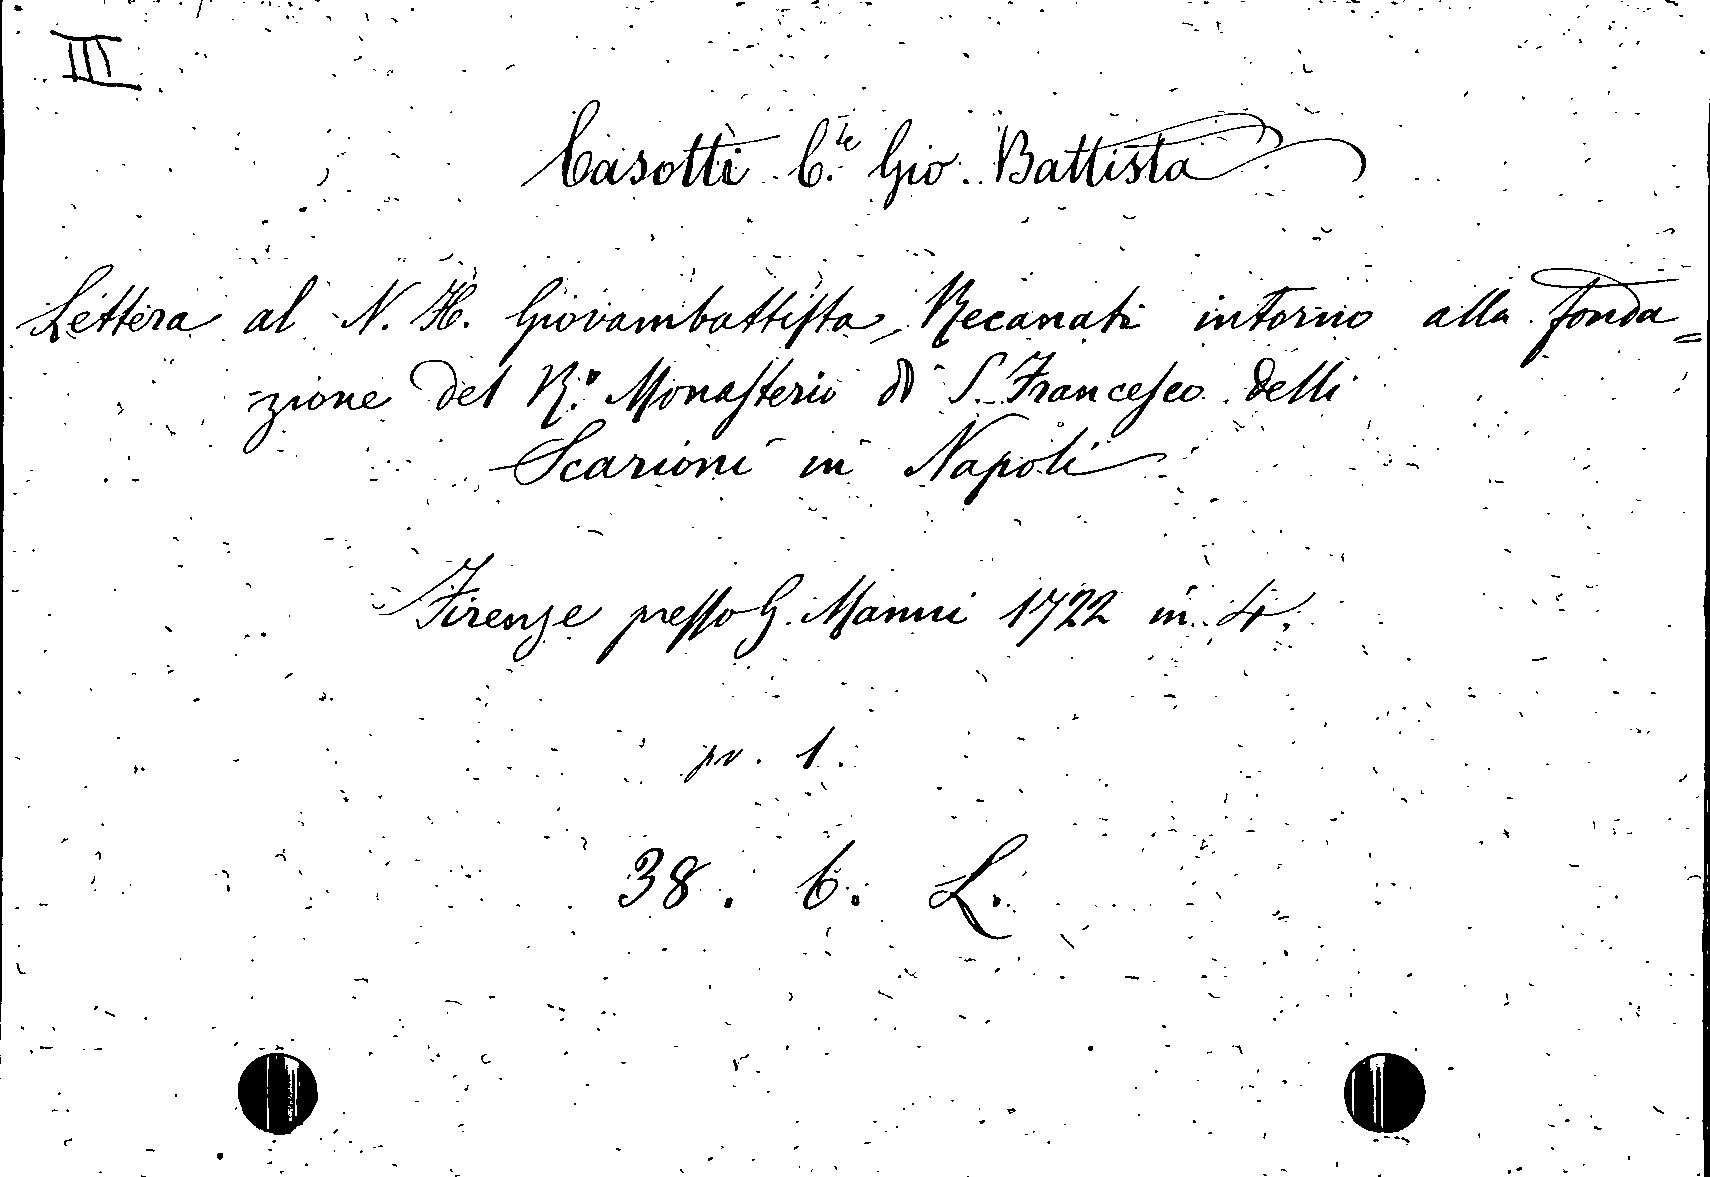 III
Casotti C.te Gio. Battista
Lettera al N. H. Giovambattista Recanati intorno alla fonda=
zione del R.o Monasterio di S. Francesco delli
Scarioni in Napoli
Firenze presso G. Manni 1722 in 4.
pr. 1.
38. C. L.